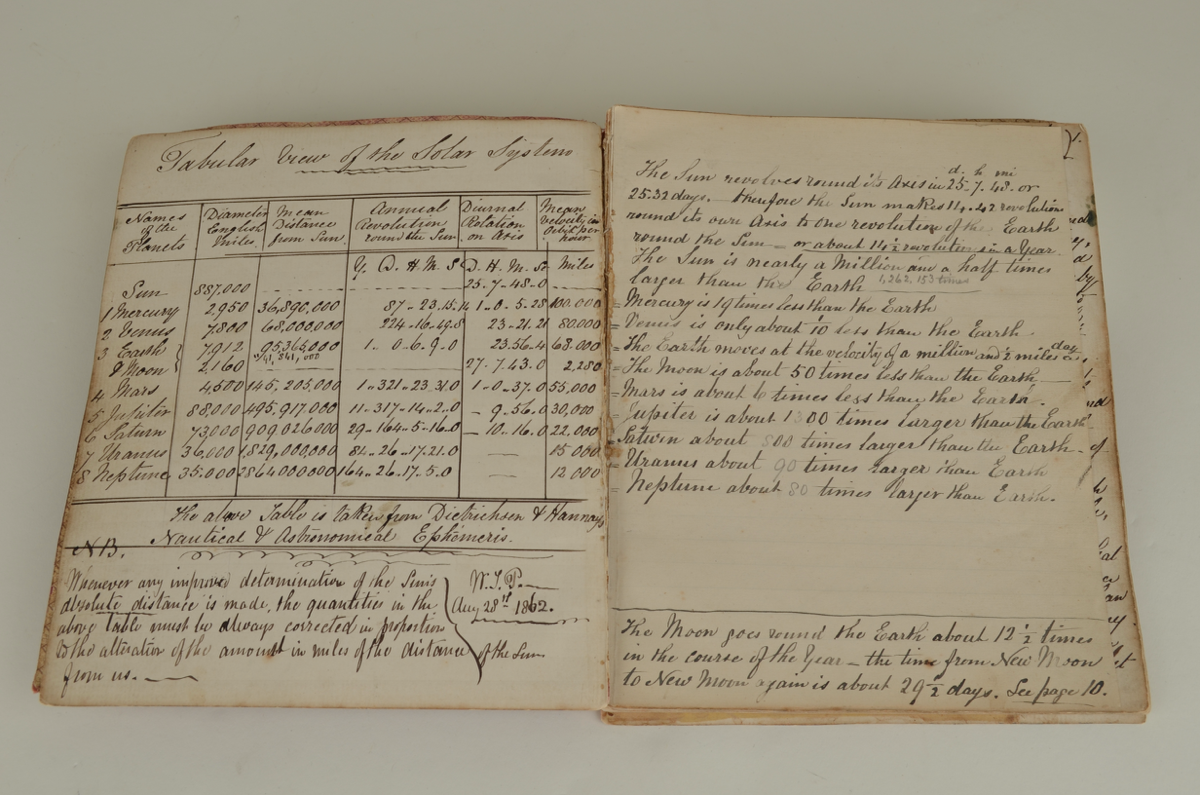 Tabular View of the Solar System
Names of the Planets | Diameter English Miles. | Mean Distance from Sun. | Annual Revolution round the Sun | Diurnal Rotation on Axis | Mean velocity in Orbit per hour
Y. D. H M S | D. H. M. S | Miles
Sun 887,000 25-7-48-0
1 Mercury 2,950 36,890,000 87-23.15.14 1-0-5-28 100.000
2 Venus 7,800 68,000,000 224-16-49.8 23-21.21 80.000
3 Earth 7,912 95,365,000 1-0-6.9-0 23.56.4 68.000
& Moon 2,160 27-7.43.0 2,280
4 Mars 4500 145,205,000 1-321-23.31.0 1-0-37.0 55,000
5 Jupiter 88,000 495,917,000 11-317-14-2.0 - 9.56.0 30,000
6 Saturn 73,000 909,026,000 29-164-5-16.0 - 10-16.0 22.000
7 Uranus 36,000 1,829,000,000 84-26-17.21.0 — 15 000
8 Neptune 35.000 2864000000 164-26-17.5.0 — 12 000
The above Table is taken from Dietrichsen & Hannay's
Nautical & Astronomical Ephemeris.
NB.
Whenever any improved determination of the Sun's
absolute distance is made, the quantities in the
above table must be always corrected in proportion
to the alteration of the amount in miles of the distance of the Sun
from us.
W.T.P.
Aug 28th 1862.
d. h mi
The Sun revolves round its Axis in 25.7.48. or
25.32 days. therefore the Sun makes 14.42 revolutions
round its own Axis to one revolution of the Earth
round the Sun - or about 14½ revolution in a Year.
The Sun is nearly a Million and a half times
larger than the Earth 1,262,153 times
= Mercury is 19 times less than the Earth
= Venus is only about 10 less than the Earth
= The Earth moves at the velocity of a million and ½ miles a day
= The Moon is about 50 times less than the Earth
= Mars is about 6 times less than the Earth.
= Jupiter is about 1300 times larger than the Earth
= Saturn about 800 times larger than the Earth
= Uranus about 90 times larger than Earth
= Neptune about 80 times larger than Earth.
The Moon goes round the Earth about 12½ times
in the course of the Year - the time from New Moon
to New Moon again is about 29½ days. See page 10.